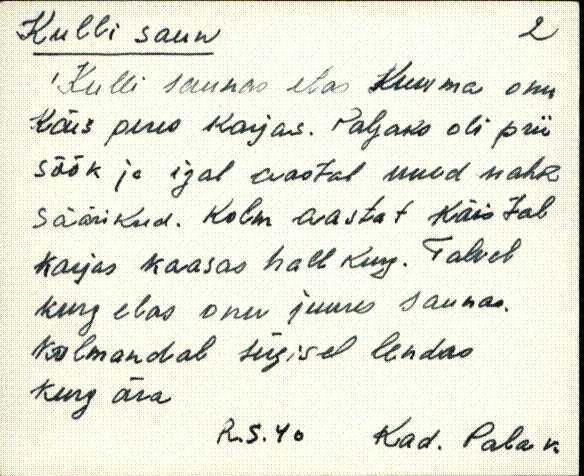 Kulli saun 2
Kulli saunas elas Kuuma onu
Käis peres karjas. Palgaks oli prii
söök ja igal aastal uued nahk
säärikud. Kolm aastat käis tal
karjas kaasas hall kurg. Talvel
kurg elas onu juures saunas.
Kolmandal sügisel lendas
kurg ära
R.S.40 Kad. Palav.